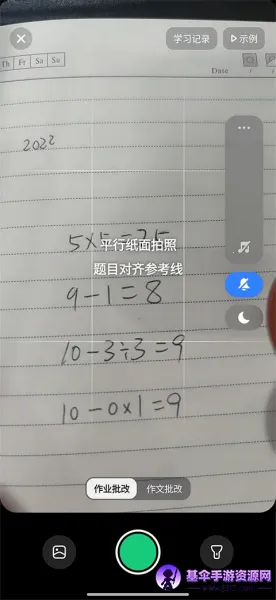 学习记录
示例
Th Fr Sa Su
Date
2022
5×5=25
平行纸面拍照
题目对齐参考线
9-1=8
10-3÷3=9
10-0×1=9
作业批改 作文批改
基伞手游资源网